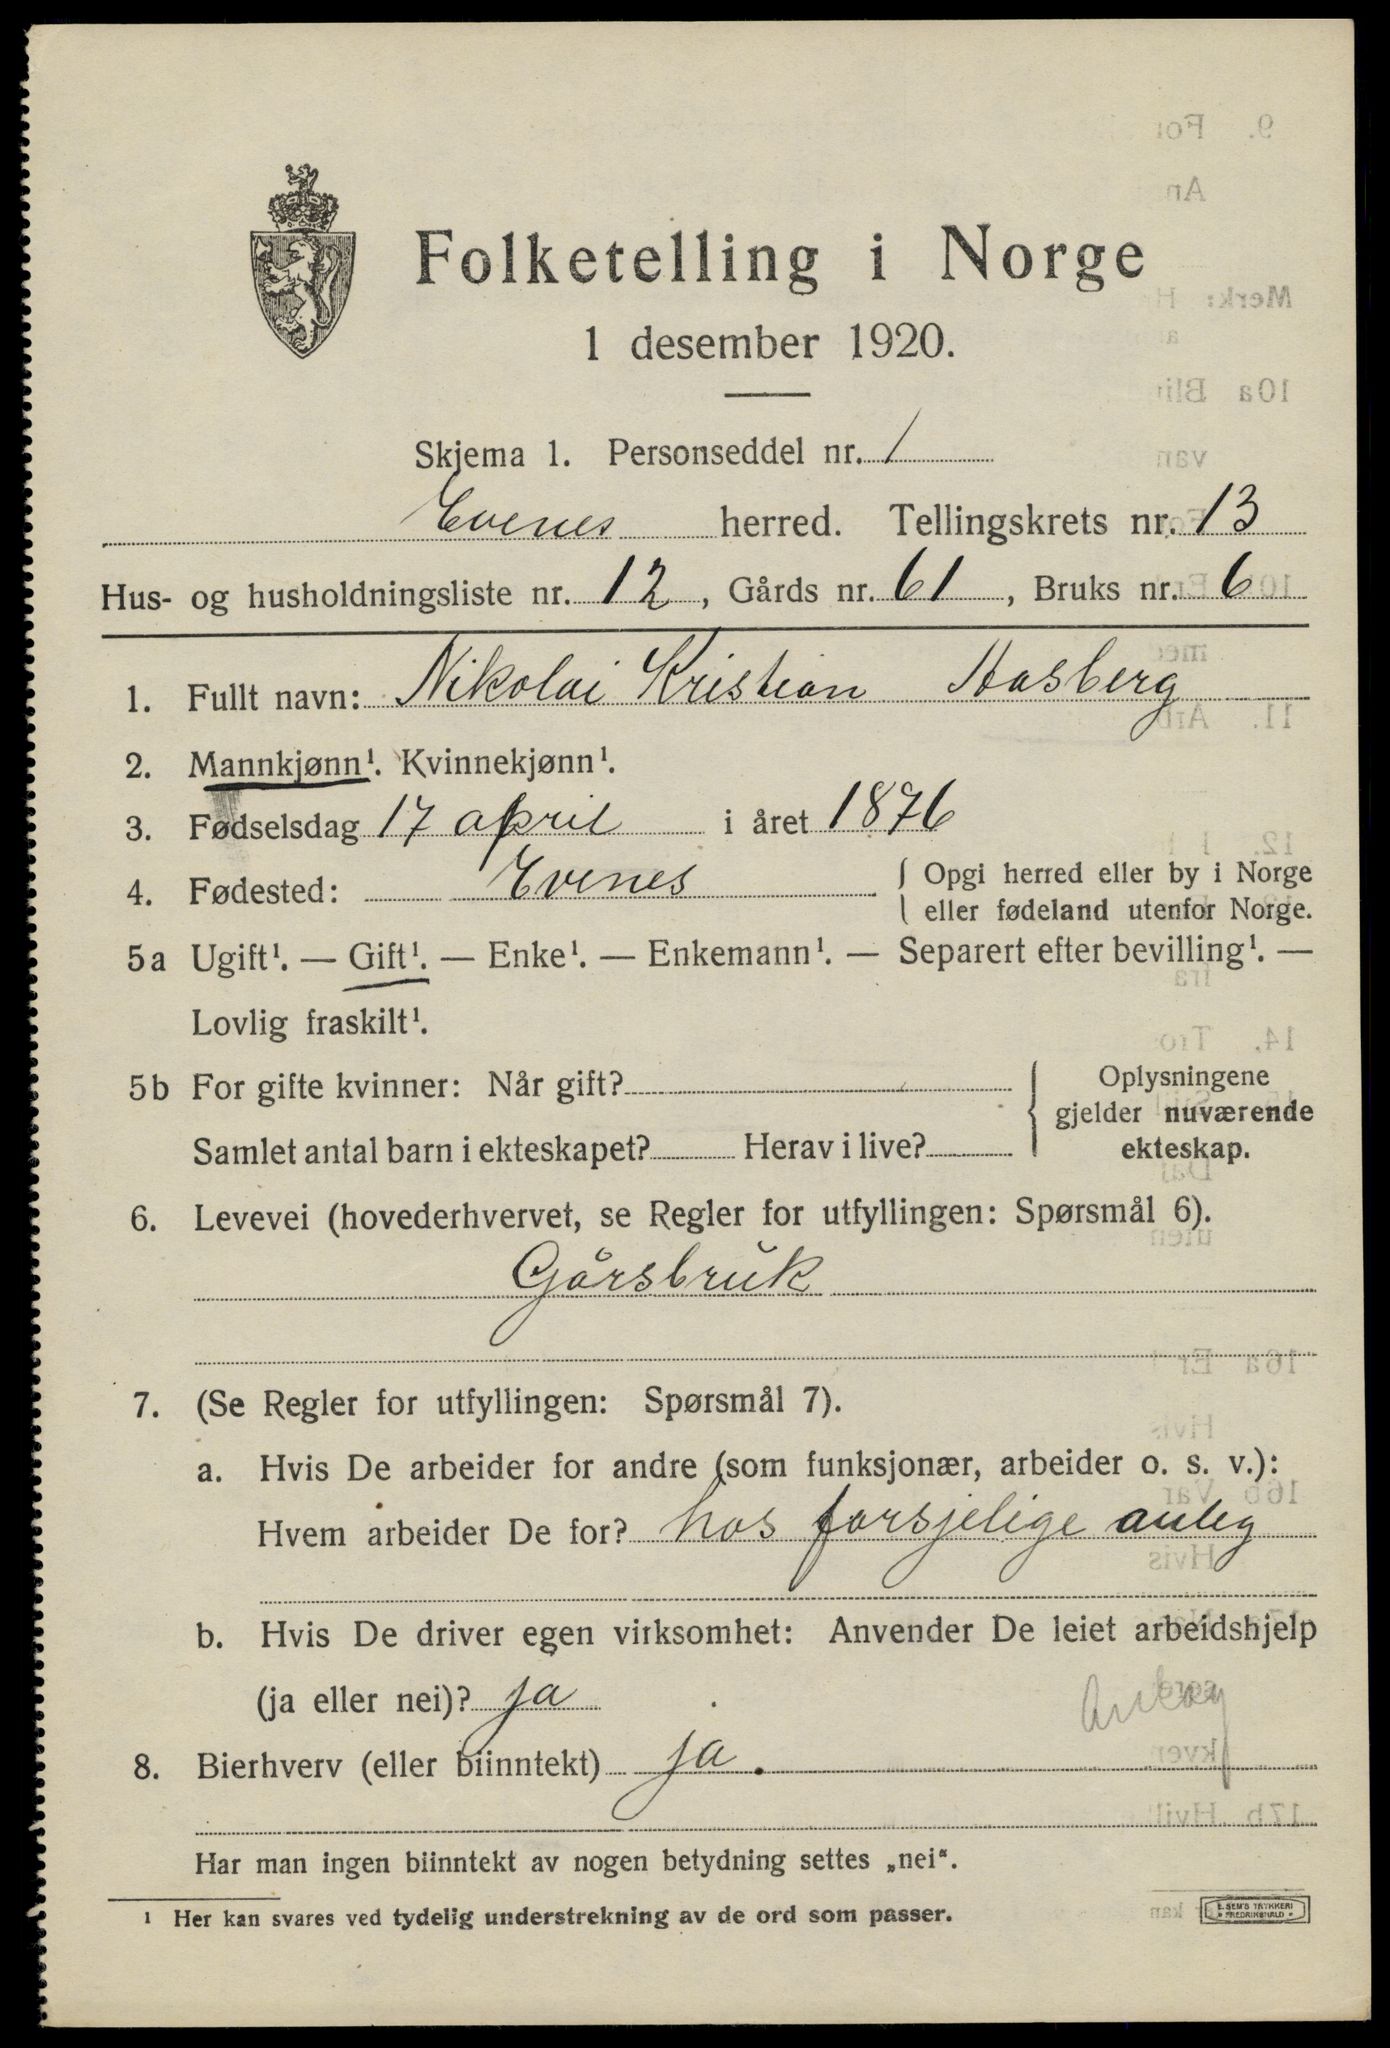 Folketelling i Norge
1 desember 1920.
Skjema 1. Personseddel nr. 1
Evenes herred. Tellingskrets nr. 13
Hus- og husholdningsliste nr. 12, Gårds nr. 61, Bruks nr. 6
1. Fullt navn: Nikolai Kristian Aasberg
2. Mannkjønn¹. Kvinnekjønn¹.
3. Fødselsdag 17 april i året 1876
4. Fødested: Evenes { Opgi herred eller by i Norge
eller fødeland utenfor Norge.
5a Ugift¹. — Gift¹. — Enke¹. — Enkemann¹. — Separert efter bevilling¹. —
Lovlig fraskilt¹.
5b For gifte kvinner: Når gift?
Samlet antal barn i ekteskapet? Herav i live?
Oplysningene
gjelder nuværende
ekteskap.
6. Levevei (hovederhvervet, se Regler for utfyllingen: Spørsmål 6).
Gårsbruk
7. (Se Regler for utfyllingen: Spørsmål 7).
a. Hvis De arbeider for andre (som funksjonær, arbeider o. s. v.):
Hvem arbeider De for? hos forsjelige anleg
b. Hvis De driver egen virksomhet: Anvender De leiet arbeidshjelp
(ja eller nei)? ja
8. Bierhverv (eller biinntekt) ja.
Har man ingen biinntekt av nogen betydning settes „nei“.
¹ Her kan svares ved tydelig understrekning av de ord som passer.
E. SEM'S TRYKKERI
FREDRIKSHALD